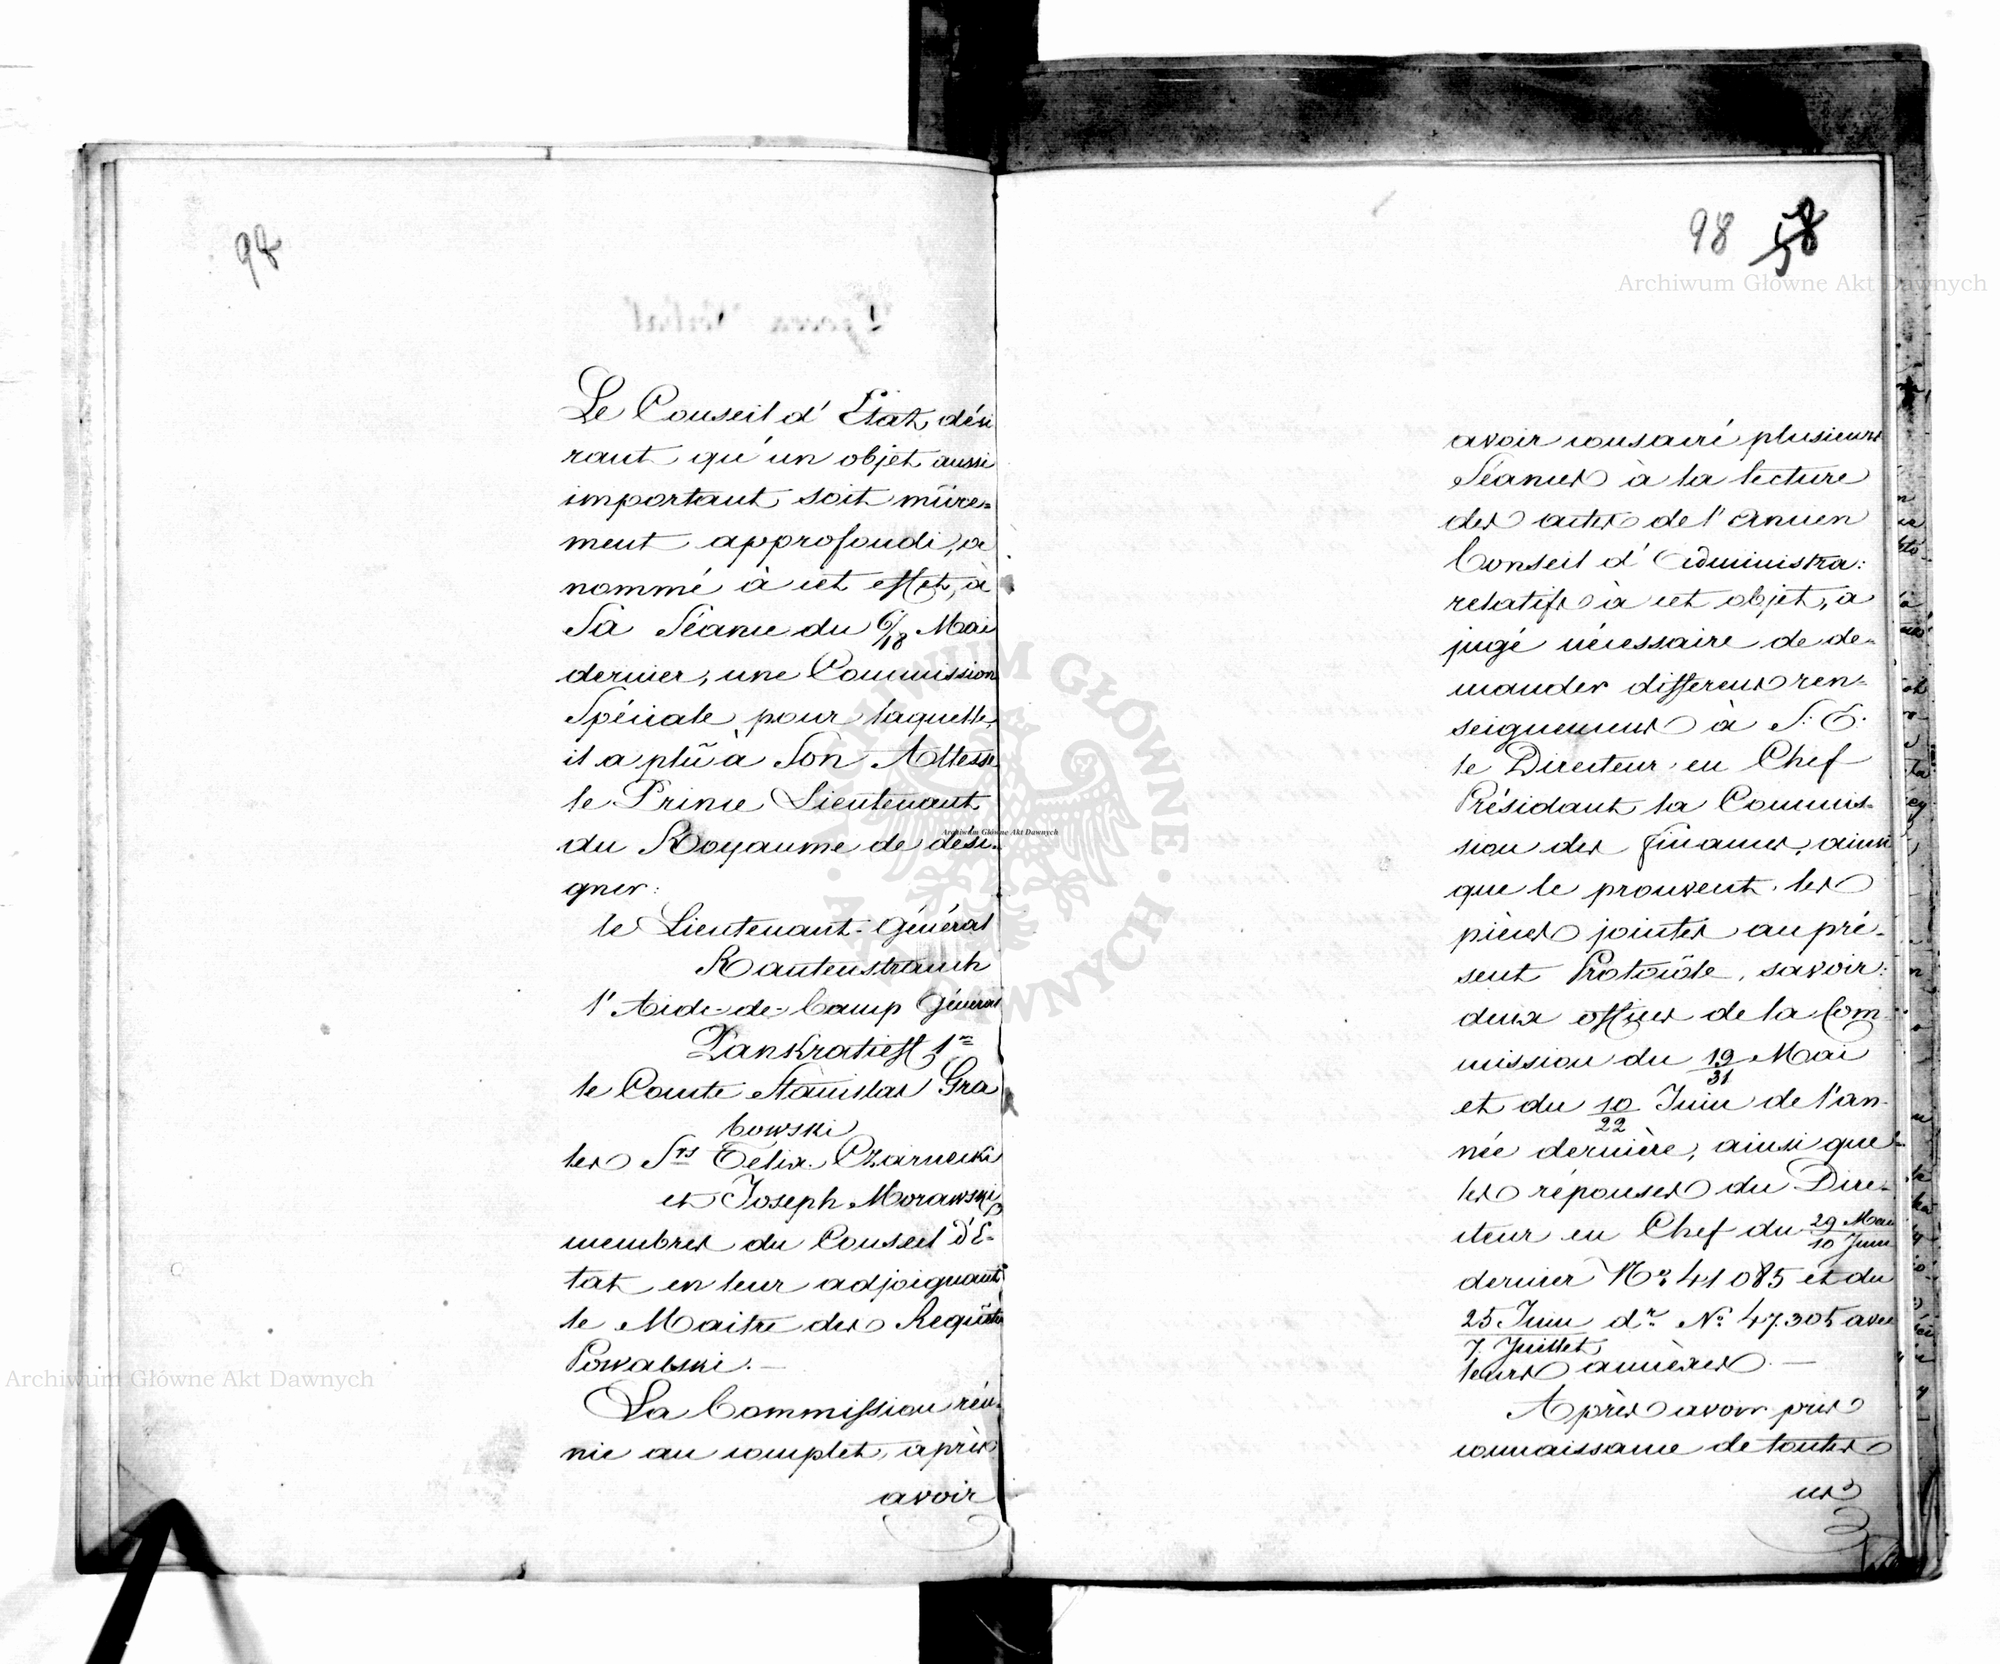 98
Le Conseil d'Etat, dési
rant qu'un objet aussi
important soit mûre=
ment approfondi, a
nommé à cet effet, à
Sa Séance du 6/18 Mai
dernier, une Commission
Spéciale pour laquelle,
il a plû à Son Altesse
le Prince Lieutenant
du Royaume de dési-
gner:
le Lieutenant-Général
Rautenstrauch
l'Aide-de-Camp Général
Pankratieff 1r
le Comte Stanislas Gra
bowski
les Srs Félix Czarnecki
et Joseph Morawski
membres du Conseil d'E-
tat en leur adjoignant
le Maitre des Requêtes
Powalski. —
La Commission réu-
nie au complet, après
avoir
98 58
avoir consacré plusieurs
Séances à la lecture
des actes de l'ancien
Conseil d'Administra:
relatifs à cet objet, a
jugé nécessaire de de=
mander differens ren=
seignemens à S: E:
le Directeur en Chef
Présidant la Commis=
sion des finances, ainsi
que le prouvent les
pièces jointes au pré-
sent Protocôle, savoir:
deux offices de la Com
mission du 19/31 Mai
et du 10/22 Juin de l'an-
née dernière, ainsi que
les réponses du Dire-
cteur en Chef du 29 Mai/10 Juin
dernier No 41085 et du
25 Juin/7 Juillet dr No 47.305 avec
leurs annèxes. —
Après avoir pris
connaissance de toutes
ces
Archiwum Główne Akt Dawnych
Archiwum Główne Akt Dawnych
Archiwum Główne Akt Dawnych
ARCHIWUM GŁÓWNE AKT DAWNYCH